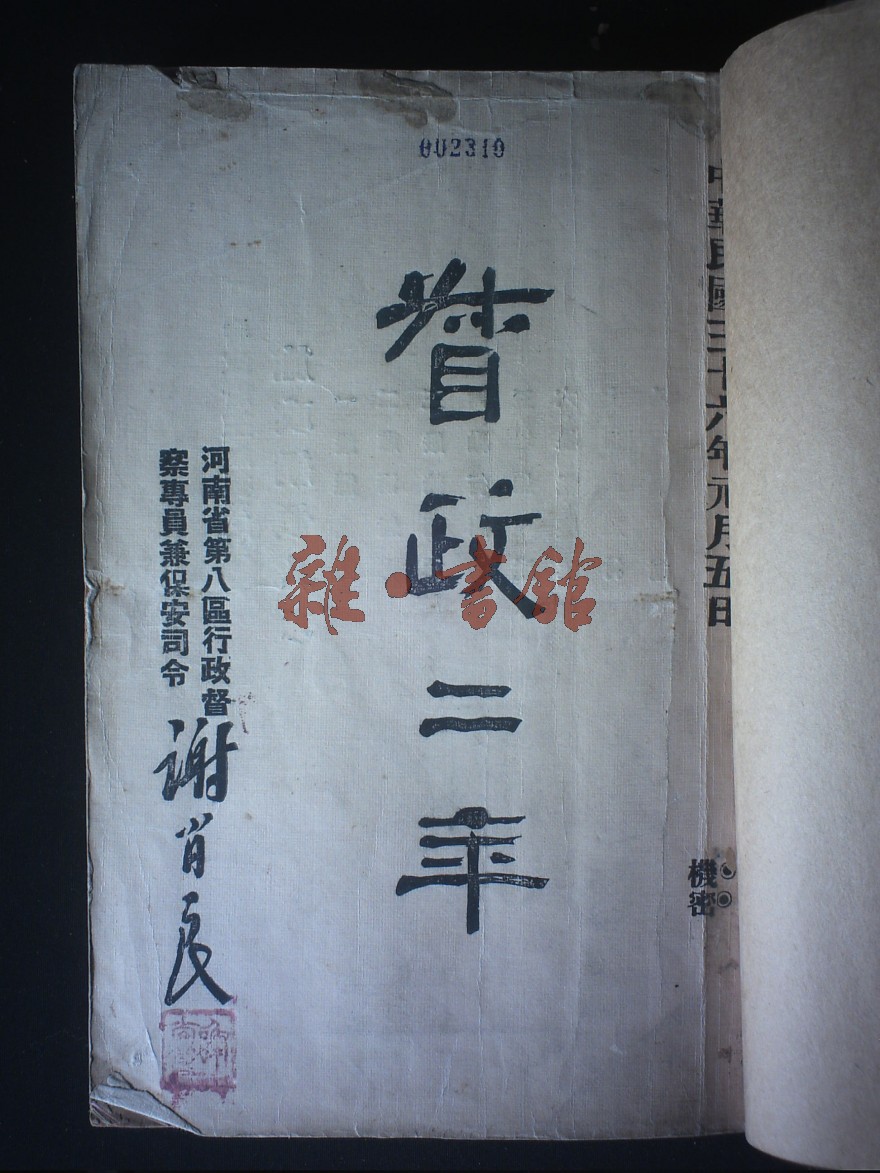 002310
中華民國三十六年元月五日
機密
督政二年
河南省第八區行政督
察專員兼保安司令
謝肖良
雜·書館